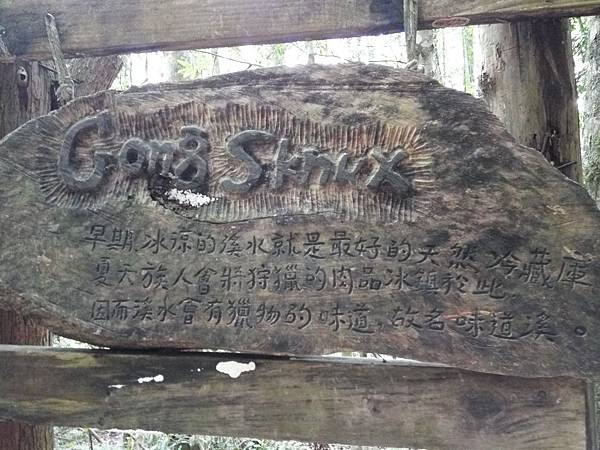 Gong Sknux
早期,冰涼的溪水就是最好的天然冷藏庫
夏天族人會將狩獵的肉品冰鎮於此,
因而溪水會有獵物的味道,故名味道溪。